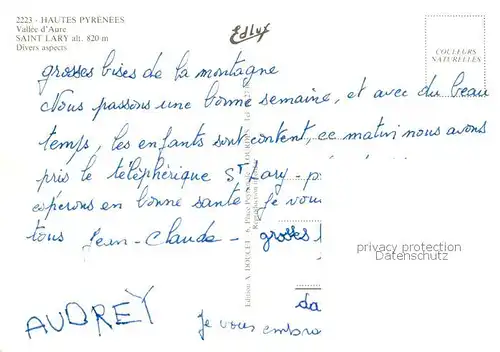 2223 - HAUTES PYRÉNÉES
Vallée d'Aure
SAINT LARY alt. 820 m
Divers aspects
Edlux
COULEURS
NATURELLES
grosses bises de la montagne
Nous passons une bonne semaine, et avec du beau
temps, les enfants sont content, ce matin nous avons
pris le téléphérique St Lary - p
espérons en bonne sante je vou
tous Jean-Claude - grosses
privacy protection
Datenschutz
da
AUDREY
je vous embra
Edition A. DOUCET - 6, Place Pey
LOURDES